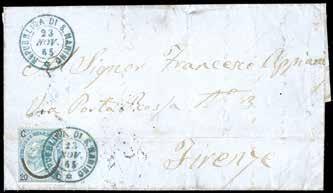 REPUBBLICA DI S. MARINO
23
NOV.
65
Al Signor Francesco Appiani
Via Porta Rossa N° 13
Firenze
REPUBBLICA DI S. MARINO
23
NOV.
65
C
20